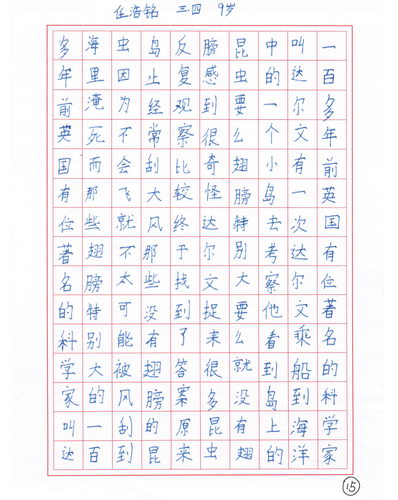 任浩铭 三.四 9岁
一百多年前英国有位著名的科学家
叫达尔文有一次达尔文乘船到海洋
中的一个小岛去考察他看到岛上的
昆虫要么翅膀特别大要么就没有翅
膀感到很奇怪达尔文捉来很多昆虫
反复观察比较终于找到了答案原来
岛上经常刮大风那些没有翅膀的昆
虫因为不会飞就不太可能被风刮到
海里淹死而那些翅膀特别大的一百
多年前英国有位著名的科学家叫达
15